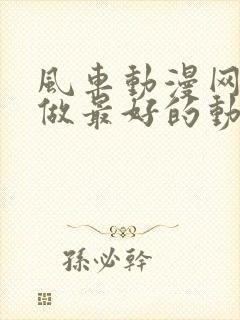 風車動漫网
做最好的動
孫必幹